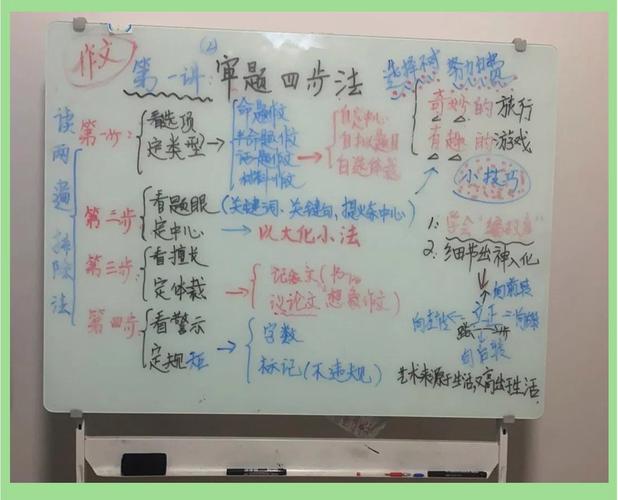 作文
第一讲：审题四步法
读两遍 排除法
第一步：
看选项
定类型
命题作文
半命题作文
话题作文
材料作文
自定中心
自拟题目
自选体裁
第二步
看题眼
定中心
(关键词、关键句，提炼中心)
以大化小法
第三步：
看擅长
定体裁
记叙文(书信
议论文 想象作文)
第四步
看警示
定规矩
字数
标记(不违规)
选择不对 努力白费
奇妙的旅行
有趣的游戏
小技巧
1. 学会"编故事"
2. 细节出神入化
向前转
向左转
立正
向后转
艺术来源于生活，又高出于生活